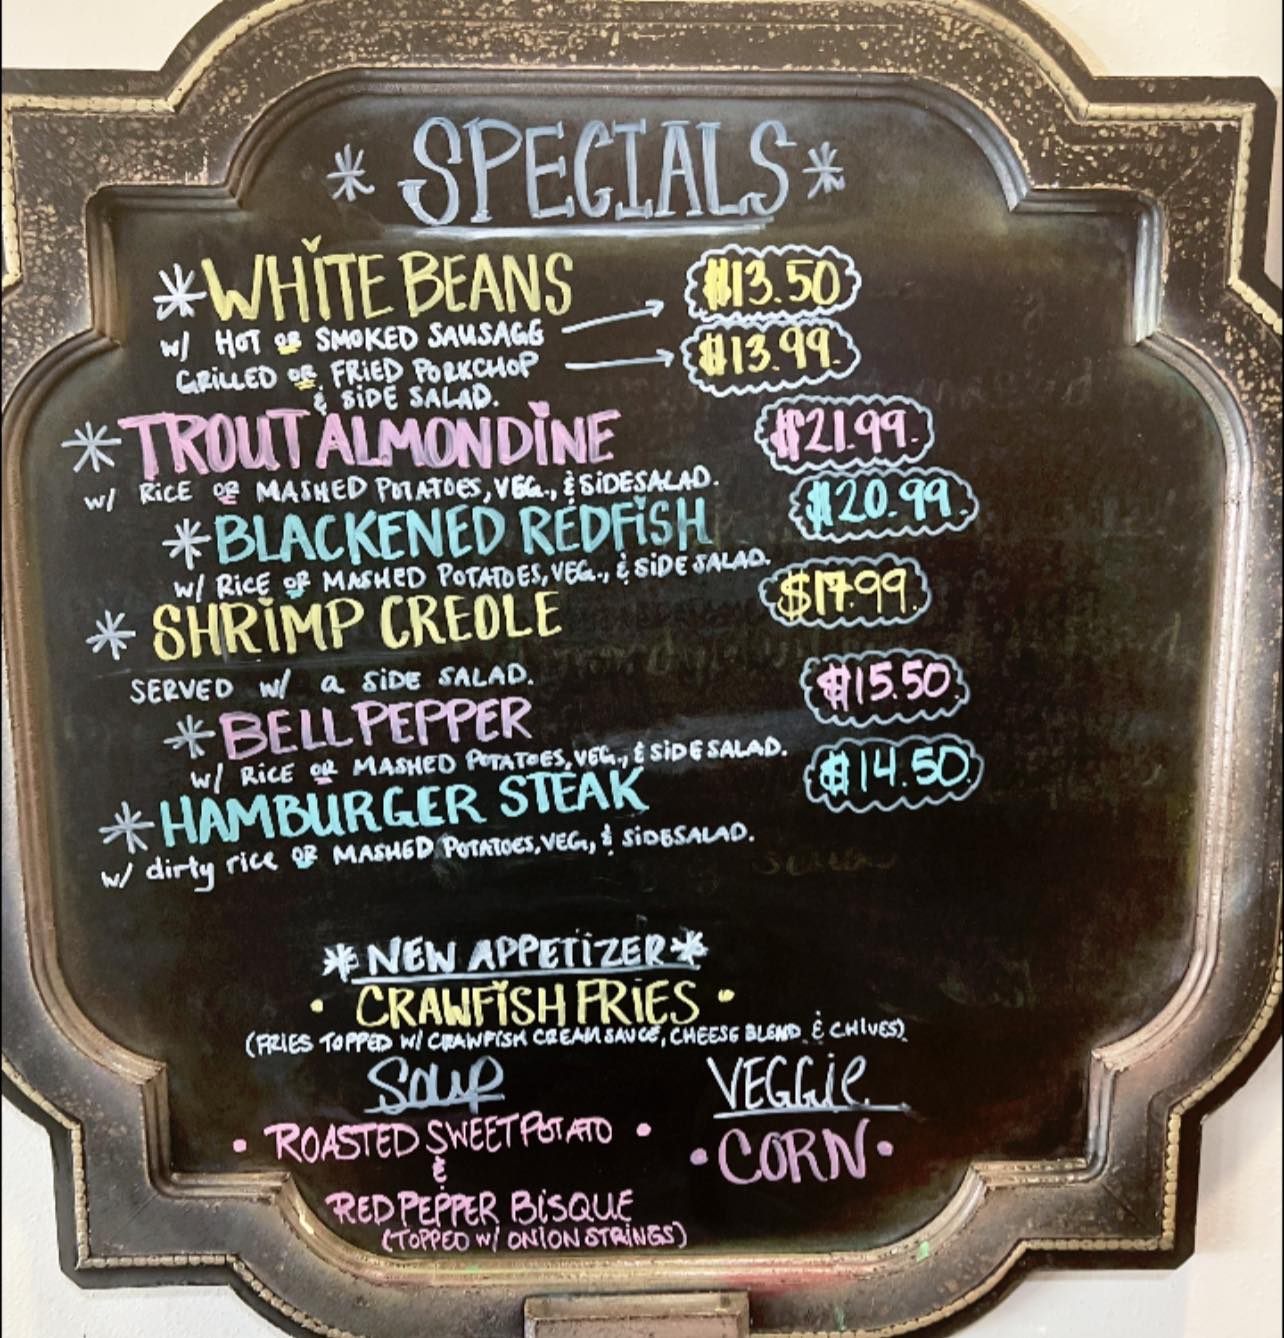 * SPECIALS *
*WHITE BEANS $13.50
w/ HOT OR SMOKED SAUSAGE
GRILLED OR FRIED PORKCHOP $13.99
& SIDE SALAD.
*TROUT ALMONDINE $21.99.
w/ RICE OR MASHED POTATOES, VEG., & SIDE SALAD.
*BLACKENED REDFISH $20.99.
w/ RICE OR MASHED POTATOES, VEG., & SIDE SALAD.
*SHRIMP CREOLE $17.99.
SERVED w/ a SIDE SALAD.
*BELL PEPPER $15.50.
w/ RICE OR MASHED POTATOES, VEG., & SIDE SALAD.
*HAMBURGER STEAK $14.50.
w/ dirty rice OR MASHED POTATOES, VEG., & SIDE SALAD.
*NEW APPETIZER*
• CRAWFISH FRIES •
(FRIES TOPPED W/ CRAWFISH CREAM SAUCE, CHEESE BLEND & CHIVES)
SOUP
• ROASTED SWEET POTATO •
&
RED PEPPER BISQUE
(TOPPED W/ ONION STRINGS)
VEGGIE
• CORN •